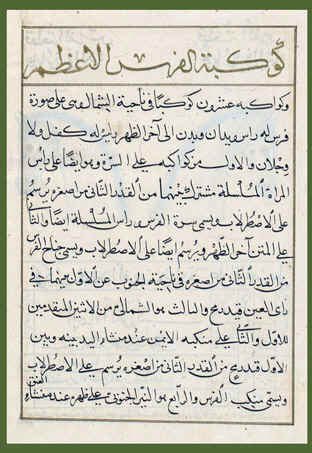 كوكبة الفرس الاعظم
وكواكبه عشرون كوكبًا فى ناحية الشمال وهى على صورة
فرس له راس ويدان وبدن الى آخر الظهر وليس له كفل ولا
رجلان والاول من كواكبه على السرّة وهو ايضًا على راس
المراة المسلسلة مشترك بينهما من القدر الثانى من اصغره يُرسم
على الاصطرلاب ويسمى سرة الفرس وراس المسلسلة ايضًا والثانى
على المتن آخر الظهر ويرسم ايضًا على الاصطرلاب ويسمى جناح الفرس
من القدر الثانى من اصغره فى ناحية الجنوب عن الاول بينهما فى
راى العين قيد رمح والثالث هو الشمالى من الاثنين المتقدمين
للاول والثانى على منكبه الايمن عند منشأ اليد بينه وبين
الاول قيد رمح من القدر الثانى من اصغره يُرسم على الاصطرلاب
ويسمى منكب الفرس والرابع هو النيّر الجنوبى على ظهره عند منشأ
العنق